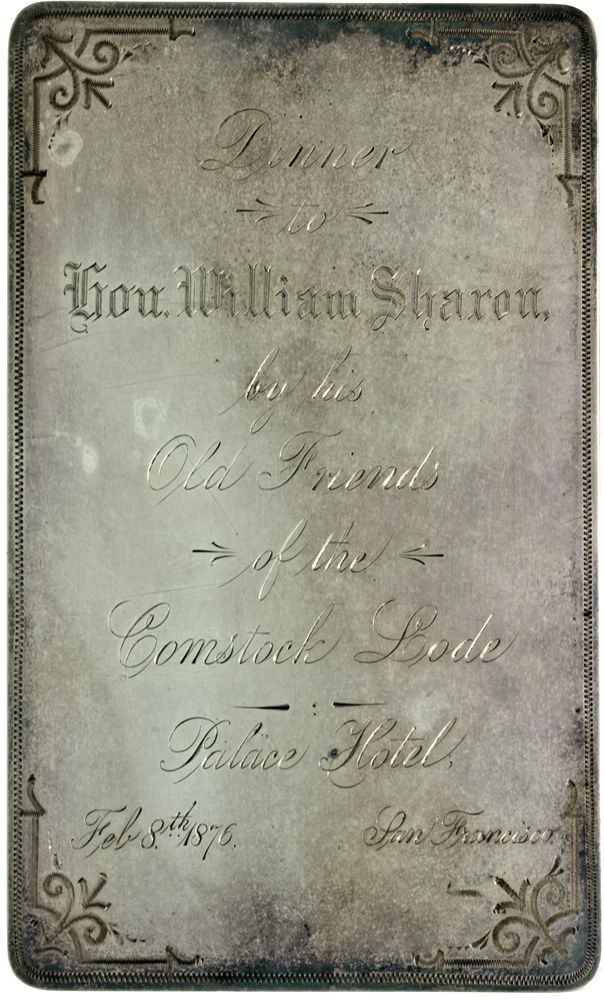 Dinner
to
Hon. William Sharon,
by his
Old Friends
of the
Comstock Lode
Palace Hotel,
Feb 8.th 1876. San Francisco.